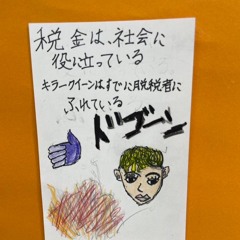 税金は、社会に
役に立っている
キラークイーンはすでに脱税者に
ふれている
ドゴーン